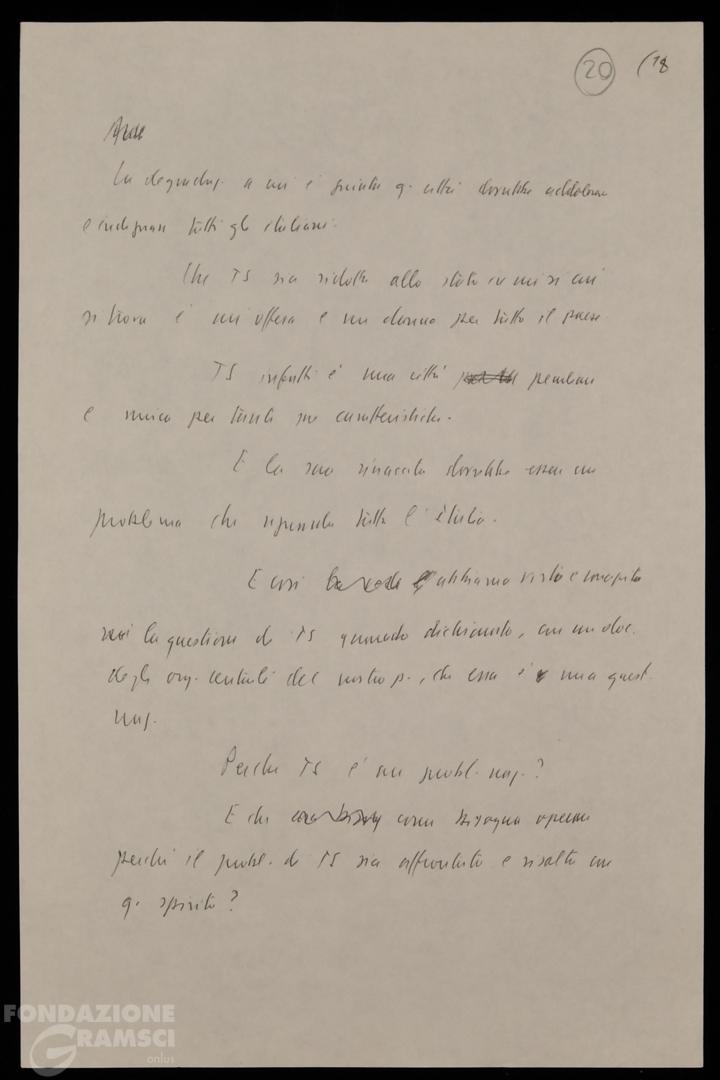 20 (18
La degradaz. a cui è giunta q. città dovrebbe addolorare
e indignare tutti gli italiani.
Che TS sia ridotta allo stato in cui
si trova è un'offesa e un danno per tutto il paese.
TS infatti è una città peculiare
e unica per tante sue caratteristiche.
E la sua rinascita dovrebbe essere un
problema che riguarda tutta l'Italia.
E così abbiamo vista e concepita
noi la questione di TS quando dichiarato, con un doc.
degli org. centrali del nostro p., che essa è una quest.
naz.
Perché TS è un probl. naz.?
E che come bisogna operare
perché il probl. di TS sia affrontato e risolto con
q. spirito?
FONDAZIONE
GRAMSCI
onlus